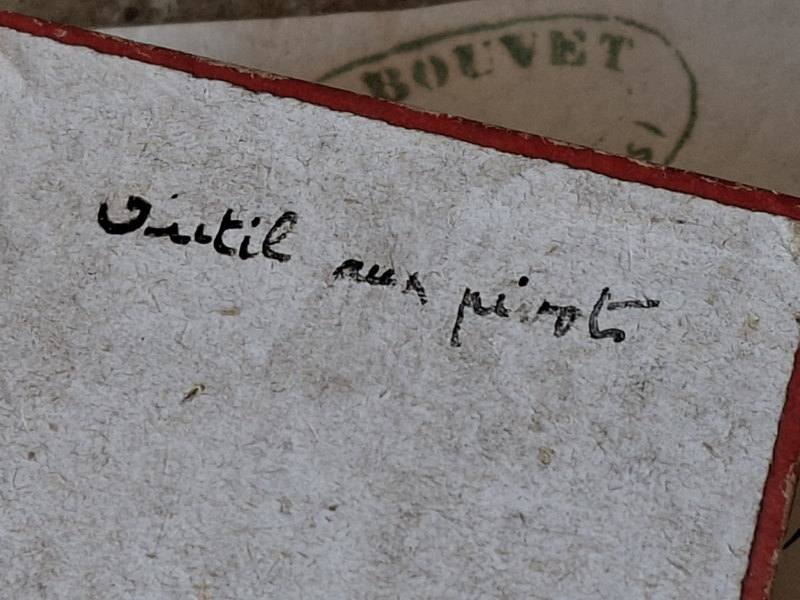 BOUVET
Outil aux pivots